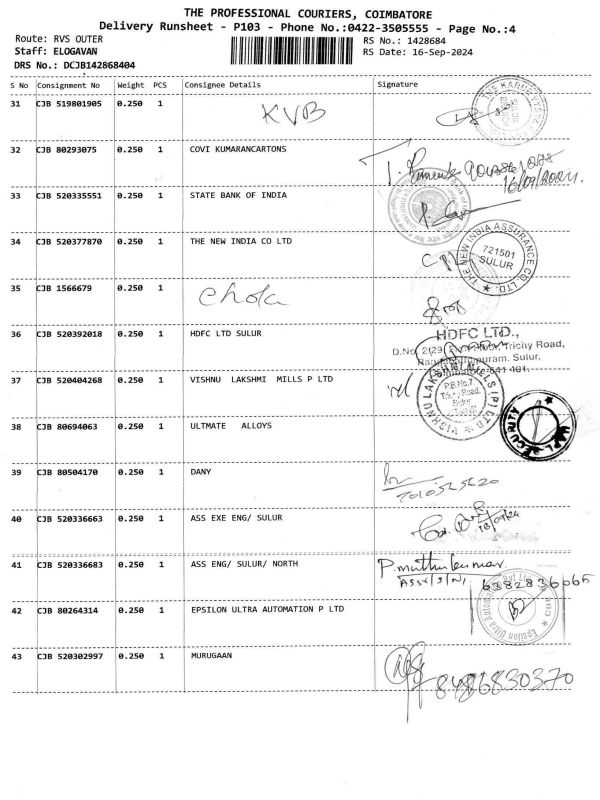 THE PROFESSIONAL COURIERS, COIMBATORE
Delivery Runsheet - P103 - Phone No.:0422-3505555 - Page No.:4
Route: RVS OUTER
RS No.: 1428684
Staff: ELOGAVAN
RS Date: 16-Sep-2024
DRS No.: DCJB142868404
S No Consignment No Weight PCS Consignee Details Signature
31 CJB 519801905 0.250 1 KVB
32 CJB 80293075 0.250 1 COVI KUMARANCARTONS
16/09/2024
33 CJB 520335551 0.250 1 STATE BANK OF INDIA
34 CJB 520377870 0.250 1 THE NEW INDIA CO LTD
THE NEW INDIA ASSURANCE CO. LTD.
721501
SULUR
35 CJB 1566679 0.250 1 Chola
36 CJB 520392018 0.250 1 HDFC LTD SULUR
HDFC LTD.,
D.No. 2/29, Trichy Road,
Sulur,
641 401.
37 CJB 520404268 0.250 1 VISHNU LAKSHMI MILLS P LTD
VISHNU LAKSHMI MILLS (P) LTD
P.B.No.7
38 CJB 80694063 0.250 1 ULTMATE ALLOYS
SECURITY
39 CJB 80504170 0.250 1 DANY
40 CJB 520336663 0.250 1 ASS EXE ENG/ SULUR
41 CJB 520336683 0.250 1 ASS ENG/ SULUR/ NORTH
P. muthukumar
6382836065
42 CJB 80264314 0.250 1 EPSILON ULTRA AUTOMATION P LTD
43 CJB 520302997 0.250 1 MURUGAAN
8486830370